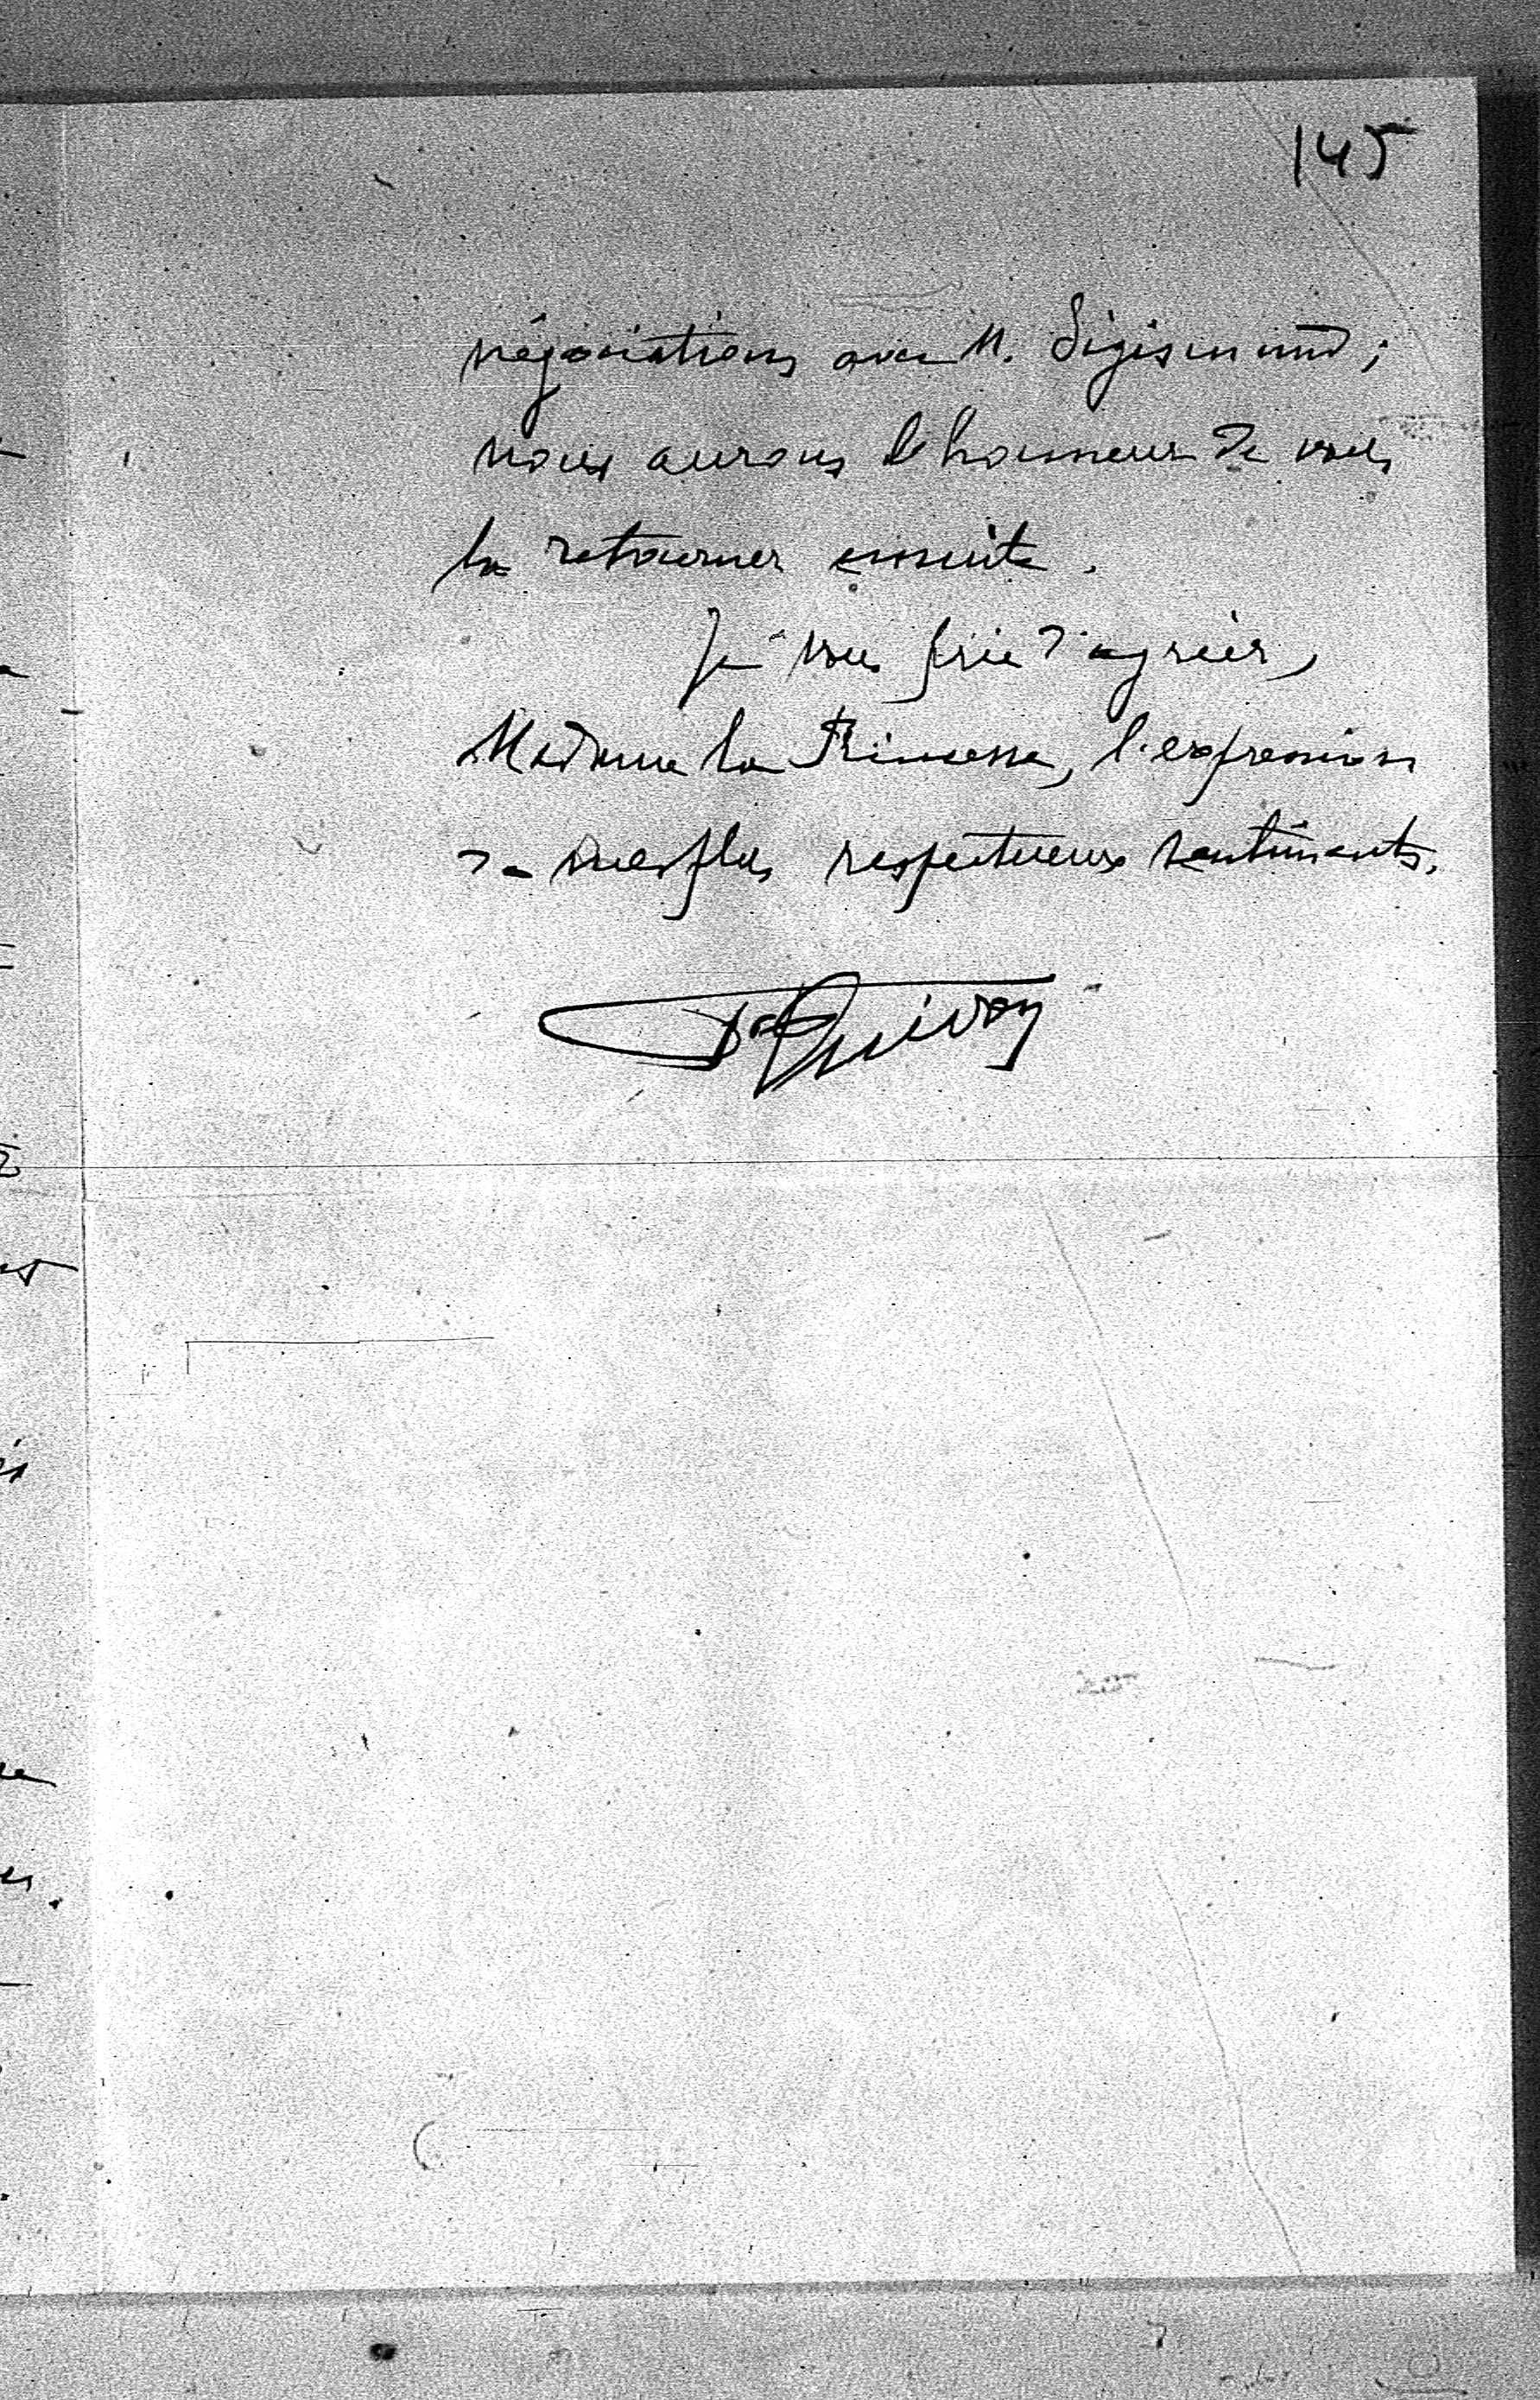 145
négociations avec M. Sigismund ;
nous aurons l'honneur de vous
la retourner ensuite.
Je vous prie d'agréer,
Madame la Princesse, l'expression
de mes plus respectueux sentiments.